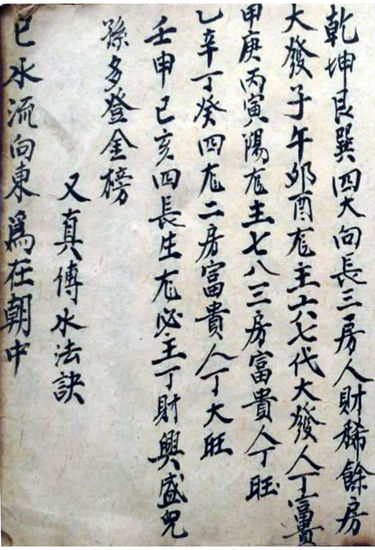 乾坤艮巽四大向長三房人財稀餘房
大發子午夘酉龙主六七代大發人丁富貴
甲庚丙寅陽龙主七八三房富貴人丁旺
乙辛丁癸四龙二房富貴人丁大旺
壬申己亥四長生龙必主丁財興盛兒
孫多登金榜
又真傳水法訣
巳水流向東為在朝中